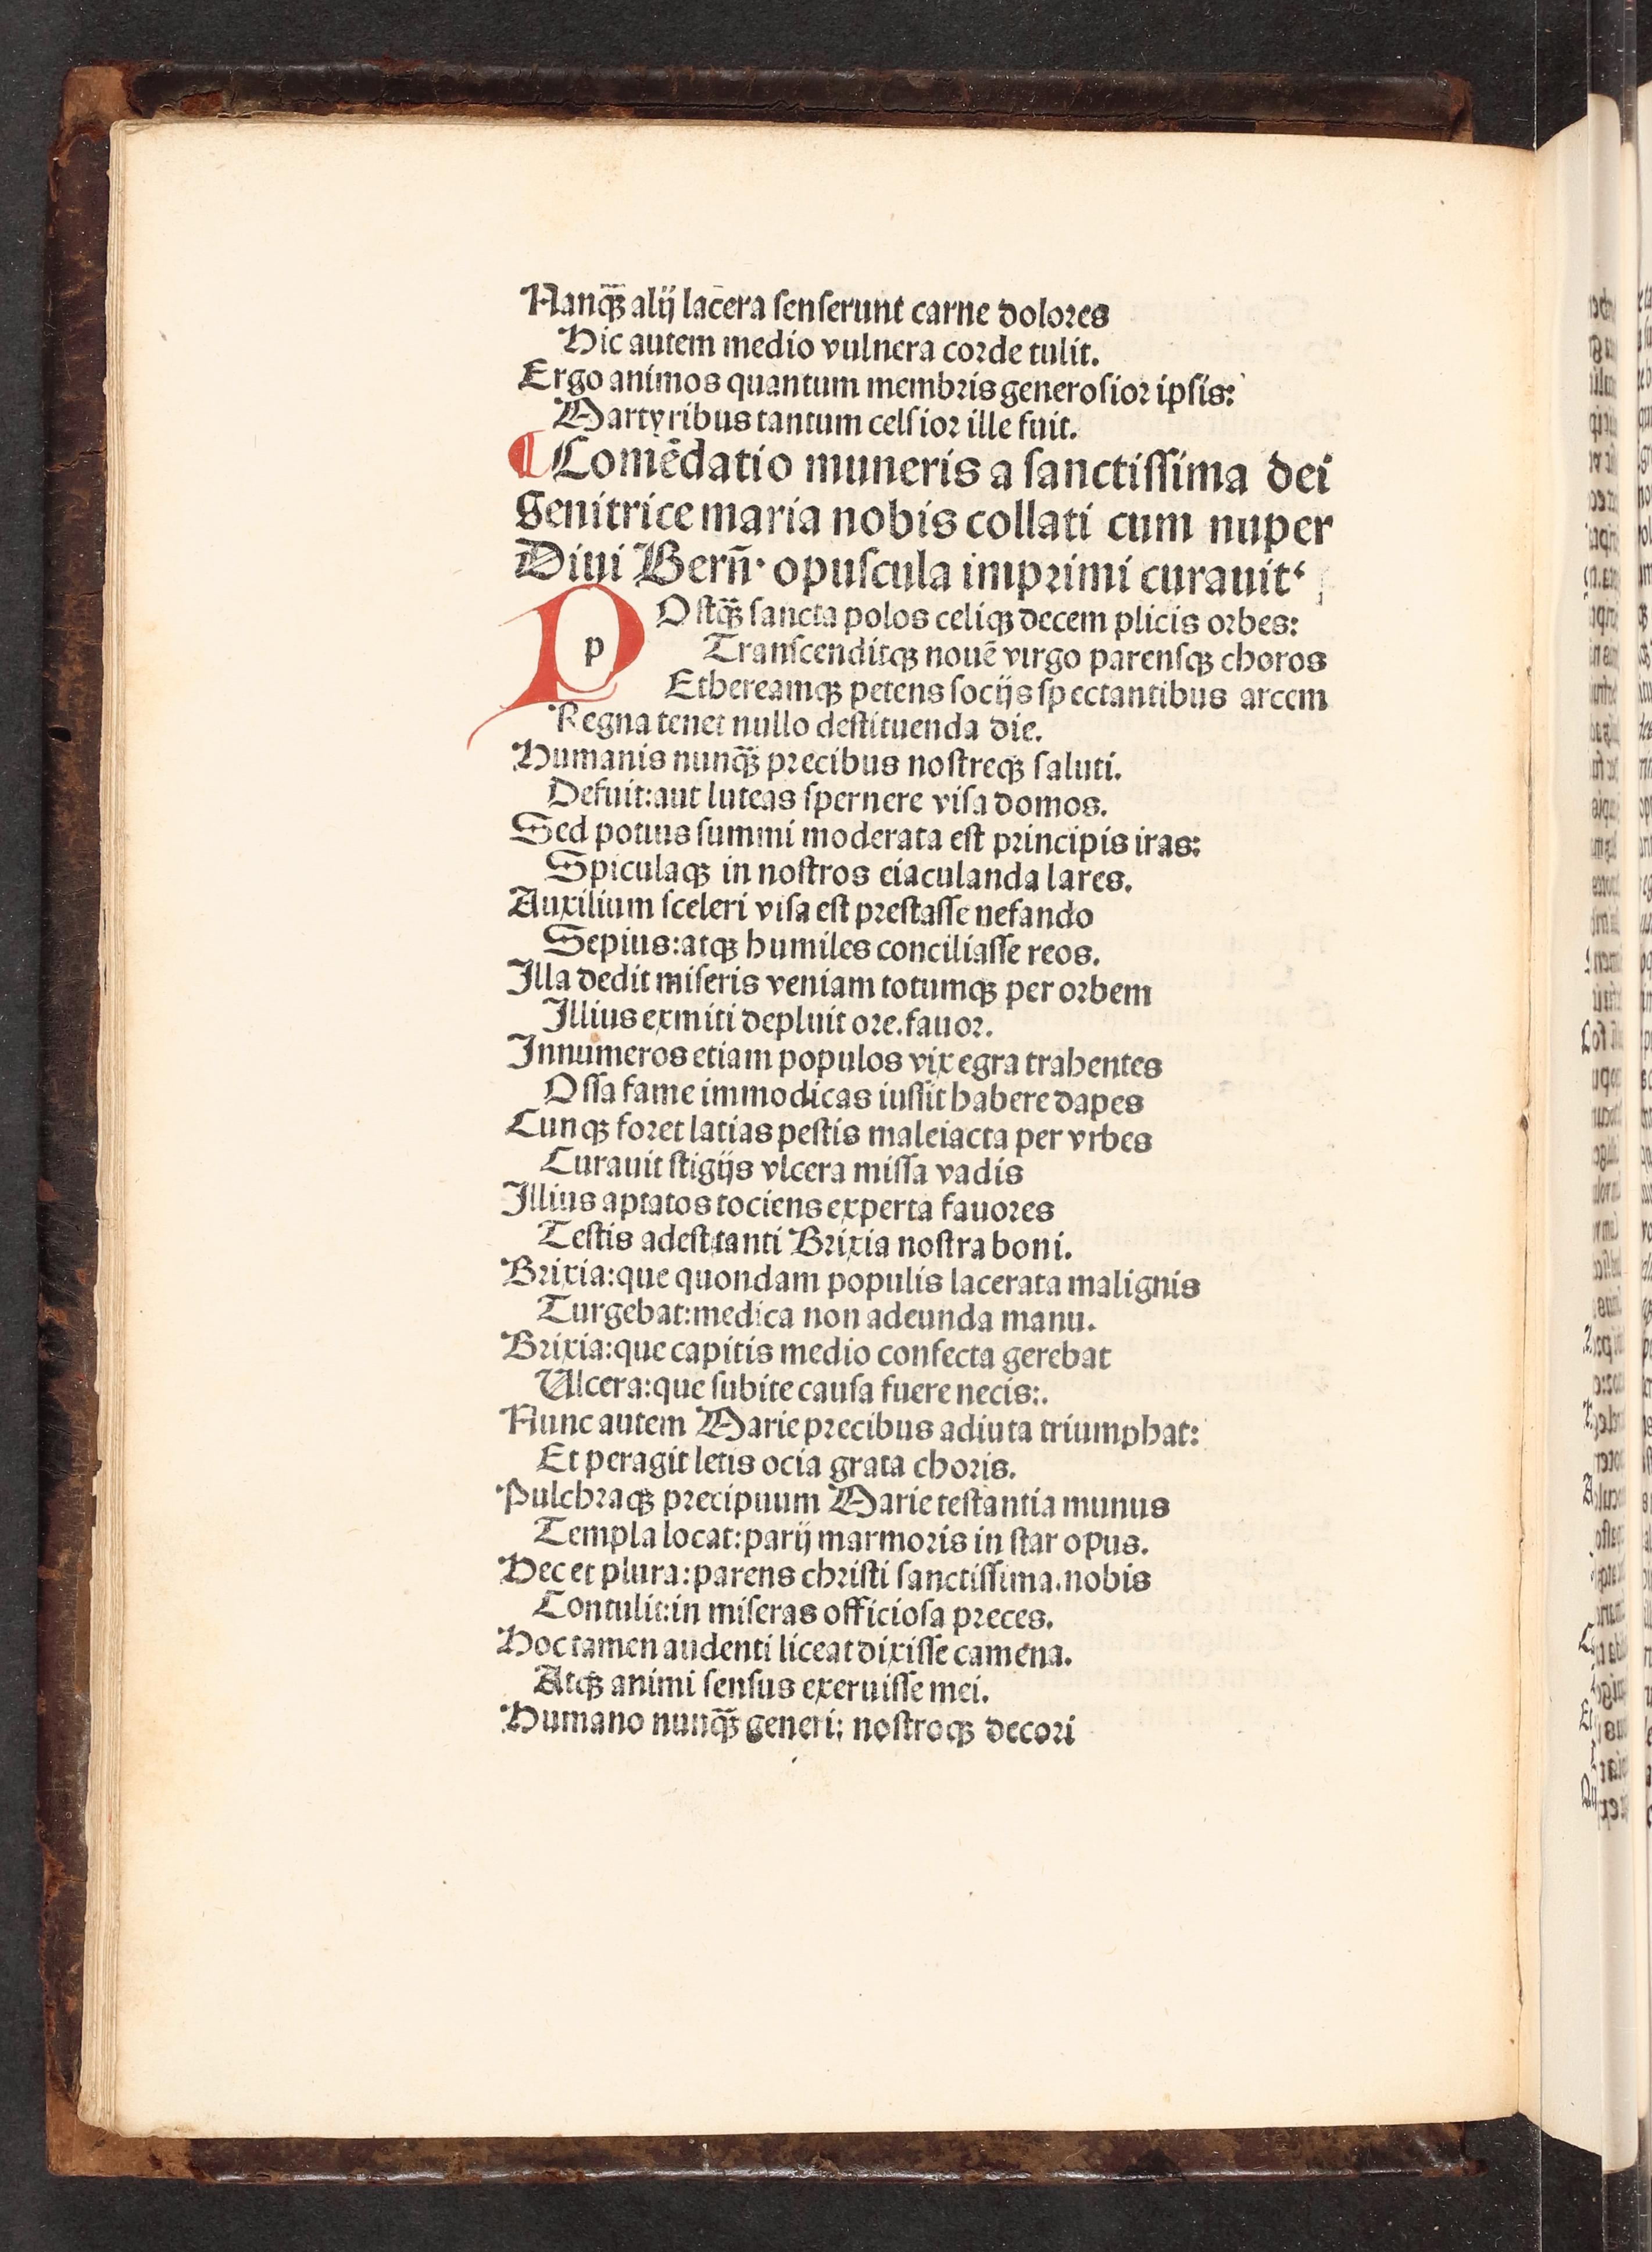 Nanqꝫ̄ alij lacera senserunt carne dolores
Hic autem medio vulnera corde tulit.
Ergo animos quantum membris generosior ipsis:
Martyribus tantum celsior ille fuit.
¶ Comēdatio muneris a sanctissima dei
Genitrice maria nobis collati cum nuper
Diui Bern̄. opuscula imprimi curauit.
POstqꝫ̄ sancta polos celiqꝫ decem plicis orbes:
Transcenditqꝫ nouē virgo parensqꝫ choros
Ethereamqꝫ petens socijs spectantibus arcem
Regna tenet nullo destituenda die.
Humanis nunqꝫ̄ precibus nostreqꝫ saluti.
Defuit: aut luteas spernere visa domos.
Sed potius summi moderata est principis iras:
Spiculaqꝫ in nostros eiaculanda lares.
Auxilium sceleri visa est prestasse nefando
Sepius: atqꝫ humiles conciliasse reos.
Illa dedit miseris veniam totumqꝫ per orbem
Illius exmiti depluit ore. fauor.
Innumeros etiam populos vix egra trahentes
Ossa fame immodicas iussit habere dapes
Cunqꝫ foret latias pestis maleiacta per vrbes
Curauit stigijs vlcera missa vadis
Illius aptatos tociens experta fauores
Testis adest tanti Brixia nostra boni.
Brixia: que quondam populis lacerata malignis
Turgebat: medica non adeunda manu.
Brixia: que capitis medio confecta gerebat
Ulcera: que subite causa fuere necis:.
Nunc autem Marie precibus adiuta triumphat:
Et peragit letis ocia grata choris.
Pulchraqꝫ precipuum Marie testantia munus
Templa locat: parij marmoris in star opus.
Hec et plura: parens christi sanctissima. nobis
Contulit: in miseras officiosa preces.
Hoc tamen audenti liceat dixisse camena.
Atqꝫ animi sensus exeruisse mei.
Humano nunqꝫ̄ generi: nostroqꝫ decori